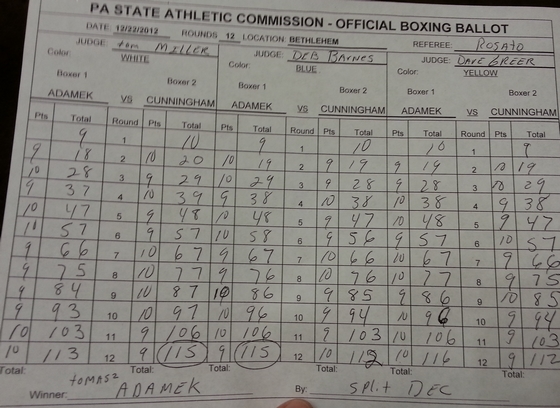 PA STATE ATHLETIC COMMISSION - OFFICIAL BOXING BALLOT
DATE: 12/22/2012 ROUNDS 12 LOCATION: BETHLEHEM
JUDGE: tom MILLER JUDGE: DEB BARNES REFEREE: ROSATO
Color: WHITE Color: BLUE JUDGE: DAVE GREER
Color: YELLOW
Boxer 1 Boxer 2 Boxer 1 Boxer 2 Boxer 1 Boxer 2
ADAMEK VS CUNNINGHAM ADAMEK VS CUNNINGHAM ADAMEK VS CUNNINGHAM
Pts Total Round Pts Total Pts Total Round Pts Total Pts Total Round Pts Total
9 1 10 9 1 10 10 1 9
9 18 2 10 20 10 19 2 9 19 9 19 2 10 19
10 28 3 9 29 10 29 3 9 28 9 28 3 10 29
9 37 4 10 39 9 38 4 10 38 10 38 4 9 38
10 47 5 9 48 10 48 5 9 47 10 48 5 9 47
10 57 6 9 57 10 58 6 9 56 9 57 6 10 57
9 66 7 10 67 9 67 7 10 66 10 67 7 9 66
9 75 8 10 77 9 76 8 10 76 10 77 8 9 75
9 84 9 10 87 10 86 9 9 85 9 86 9 10 85
9 93 10 10 97 10 96 10 9 94 10 96 10 9 94
10 103 11 9 106 10 106 11 9 103 10 106 11 9 103
10 113 12 9 115 9 115 12 10 112 10 116 12 9 112
Total: Total: Total: Total: Total: Total:
Winner: tomASZ ADAMEK By: SPLit DEC